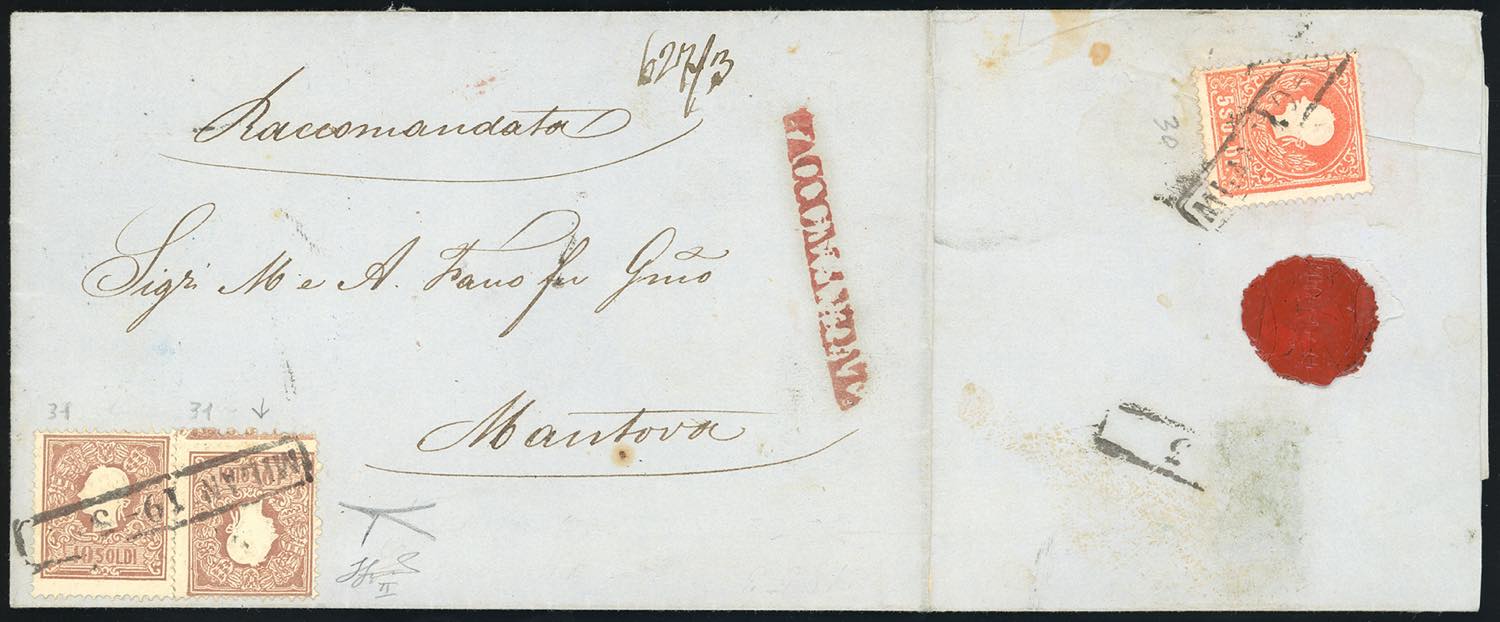 627/3
Raccomandata
RACCOMANDATA
Sigri M e A. Fano fu Gmo
Mantova
31
31
MILANO
19
10 SOLDI
II
5 SOLDI
30
MILANO